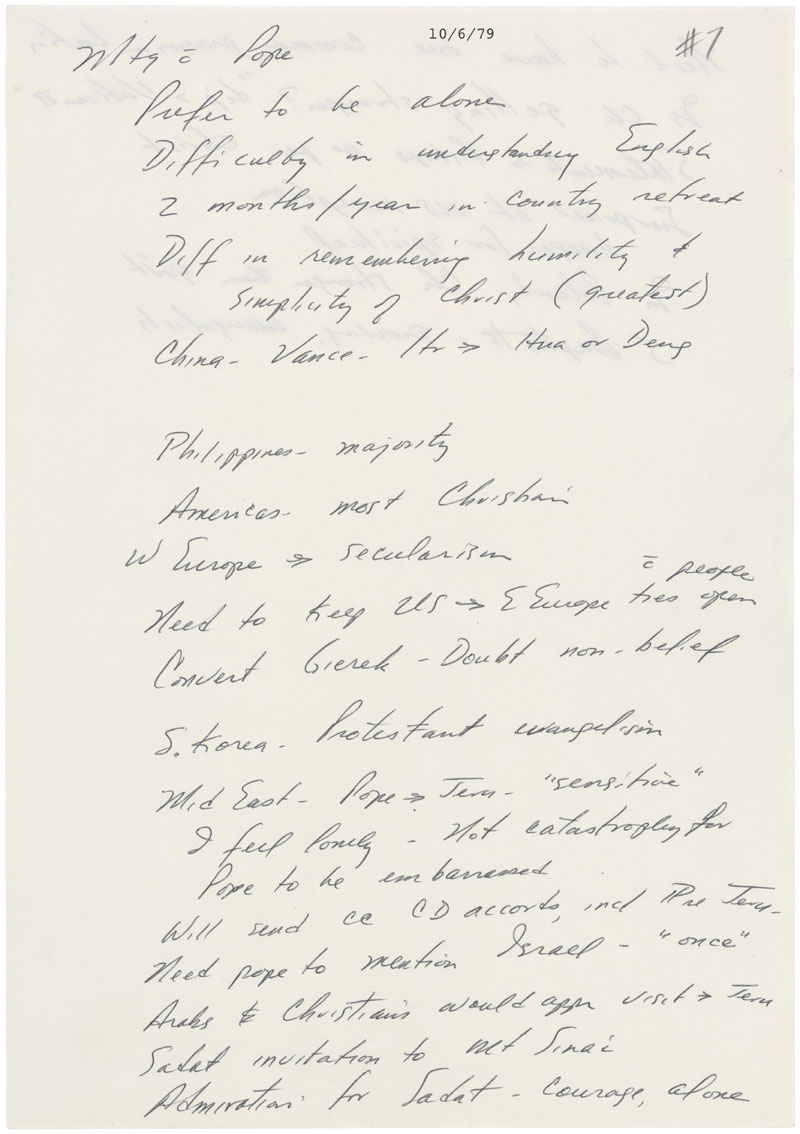 10/6/79
#1
Mtg c̄ Pope
Prefer to be alone
Difficulty in understanding English
2 months/year in country retreat
Diff in remembering humility &
simplicity of Christ (greatest)
China - Vance - ltr → Hua or Deng
Philippines - majority
Americas - most Christian
W Europe → secularism
c̄ people
Need to keep US → E Europe ties open
Convert Gierek - Doubt non-belief
S. Korea - Protestant evangelism
Mid East - Pope → Jeru - "sensitive"
I feel lonely - Not catastrophy for
Pope to be embarrassed
Will send cc CD accords, incl re Jeru-
Need pope to mention Israel - "once"
Arabs & Christians would appr visit → Jeru
Sadat invitation to Mt Sinai
Admiration for Sadat - courage, alone